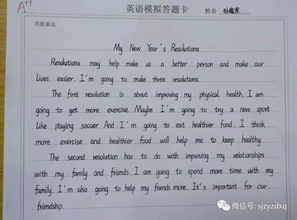 A++
英语模拟答题卡
姓名
书面表达
My New Year's Resolutions
Resolutions may help me us a better person and make our
lives easier. I'm going to make three resolutions.
The first resolution is about improving my physical health. I am
going to get more exercise. Maybe I'm going to try a new sport
like playing soccer. And I'm going to eat healthier food. I think
more exercise and healthier food will help me to keep healthy.
The second resolution has to do with improving my relationships
with my family and friends. I am going to spend more time with my
family. I'm also going to help my friends more. It's important for our
friendship.
微信号: sjzyzdxq